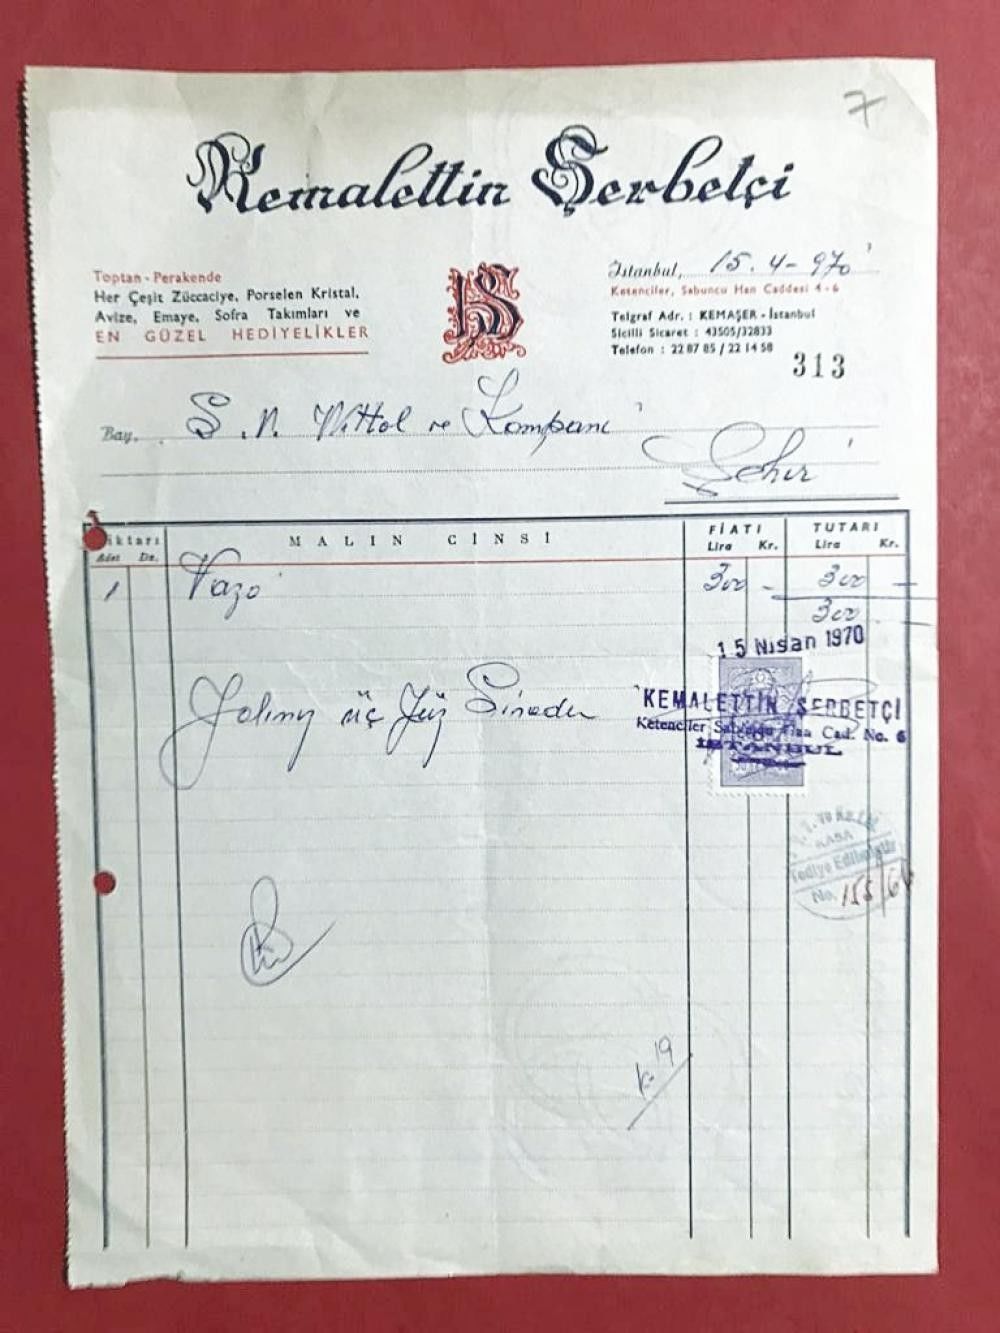 7
Kemalettin Şerbetçi
Toptan - Perakende
Her Çeşit Züccaciye, Porselen Kristal,
Avize, Emaye, Sofra Takımları ve
EN GÜZEL HEDİYELİKLER
KŞ
İstanbul, 15.4-970
Ketenciler, Sabuncu Han Caddesi 4-6
Telgraf Adr. : KEMAŞER - İstanbul
Sicilli Sicaret : 43505/32833
Telefon : 22 87 85 / 22 14 58
313
Bay, S.N. Vittol ve Kompani
Şehir
Miktarı MALIN CİNSİ FİATI TUTARI
Adet Dz. Lira Kr. Lira Kr.
1 Vazo 300 - 300 -
300
15 Nisan 1970
Yalınız üç Yüz Liradır
KEMALETTİN ŞERBETÇİ
Ketenciler Sabuncu Han Cad. No. 6
İSTANBUL
KASA
Tediye Edilmiştir
No. 155/61
K-19